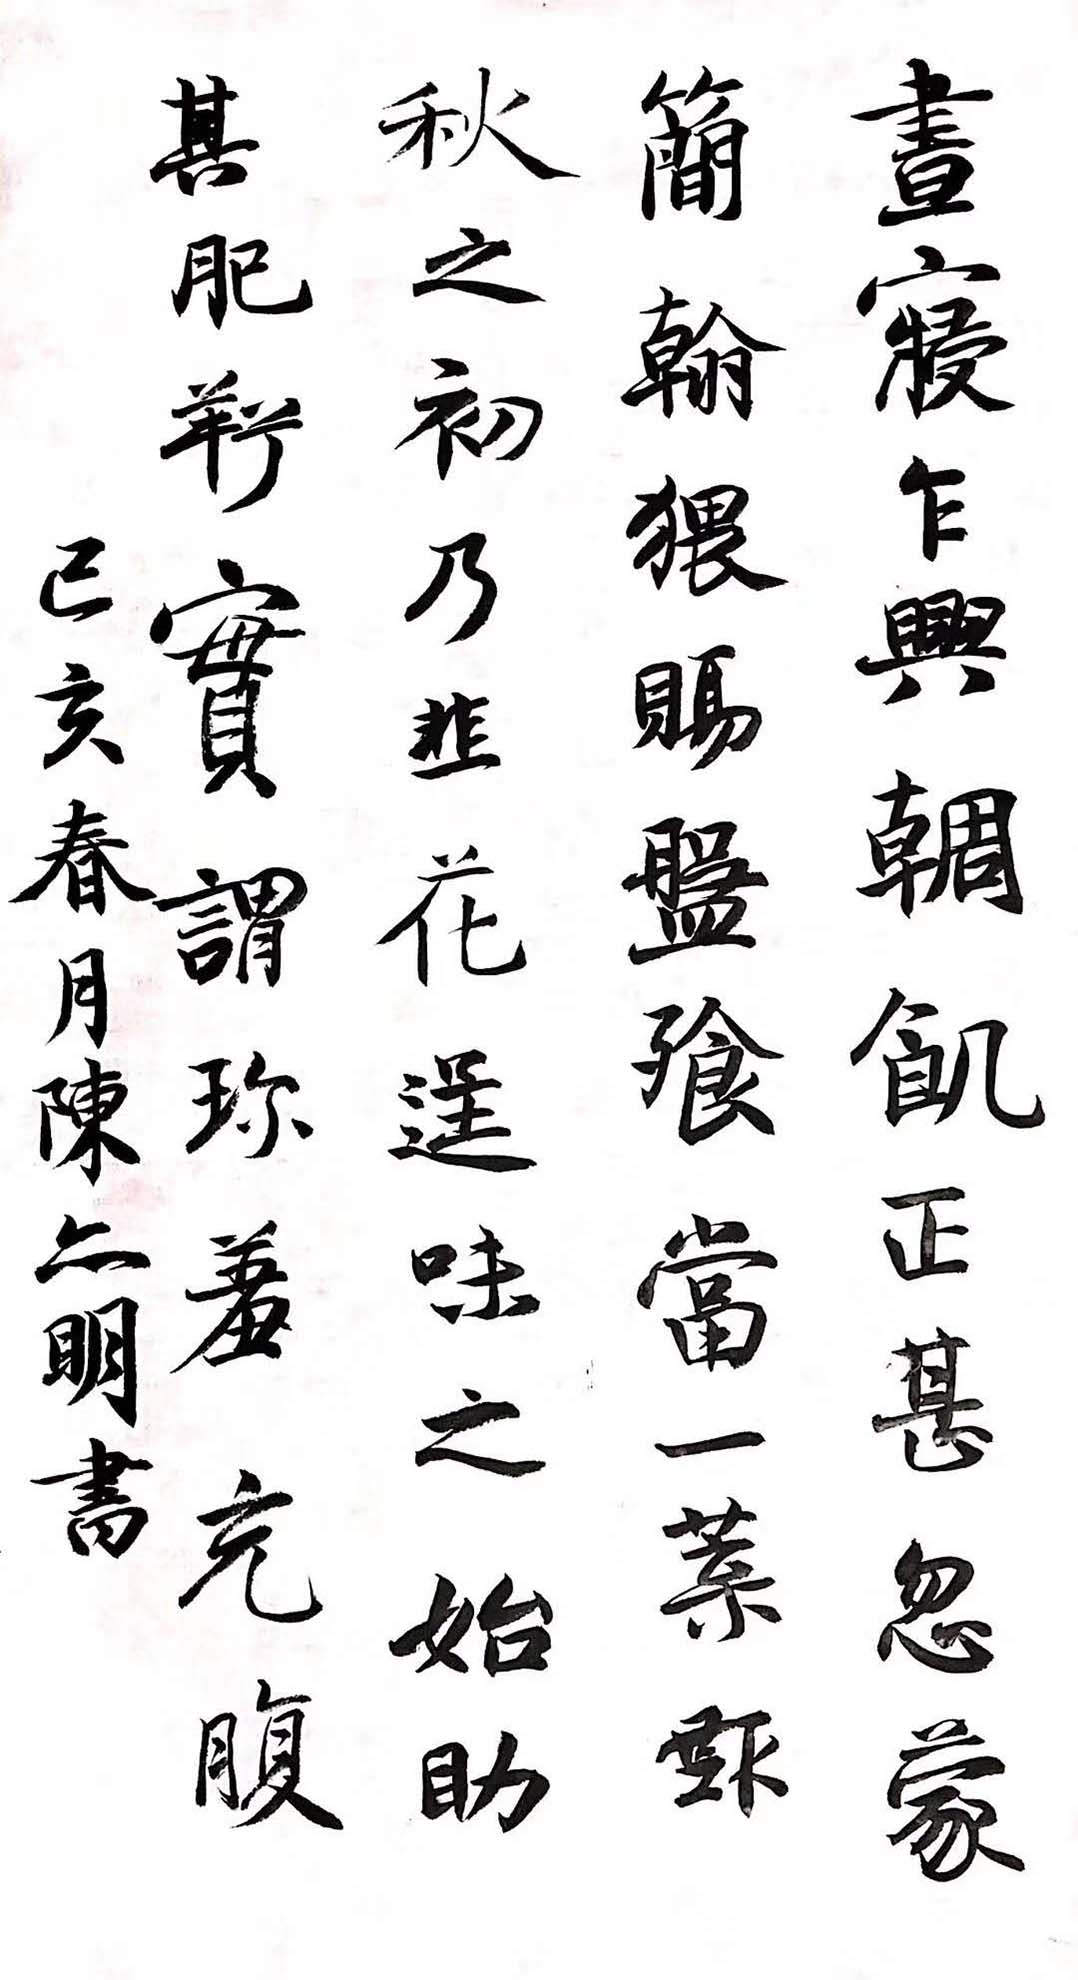 晝寢乍興輖飢正甚忽蒙
簡翰猥賜盤飱當一葉報
秋之初乃韭花逞味之始助
其肥羜實謂珍羞充腹
己亥春月陳六明書